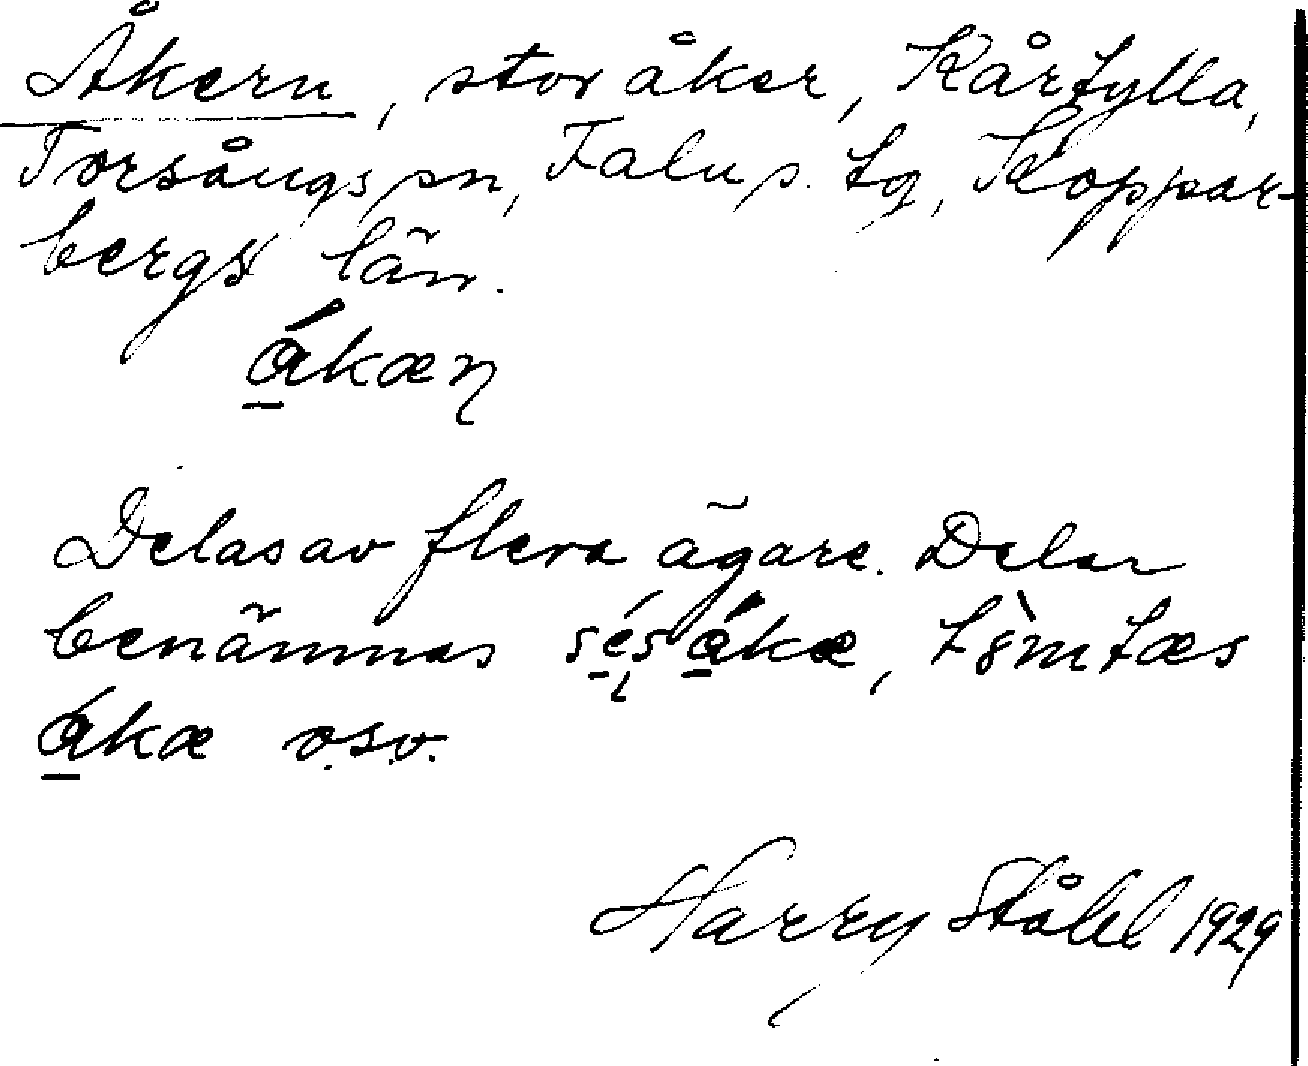 Åkern, stor åker, Kårtylla,
Torsångs sn, Falu s. tg, Koppar-
bergs län.
ǻkæn
Delas av flera ägare. Delar
benämnas sésǻkæ, tö̀mtæs
ǻkæ o.s.v.
Harry Ståhl 1929